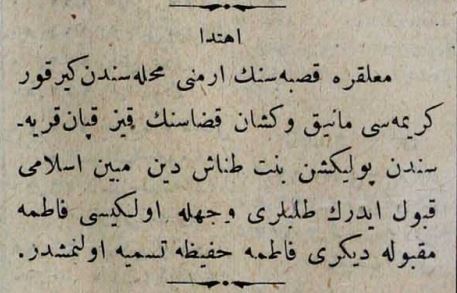 اهتدا
معلقره قصبه‌سنك ارمنی محله‌سندن كیرقور
كریمه‌سی مانیق وكشان قضاسنك قیز قپان قریه‌ـ
سندن پولیكشن بنت طناش دین مبین اسلامی
قبول ایدرك طلبلری وجهله اولكیسی فاطمه
مقبوله دیكری فاطمه حفیظه تسمیه اولنمشدر.